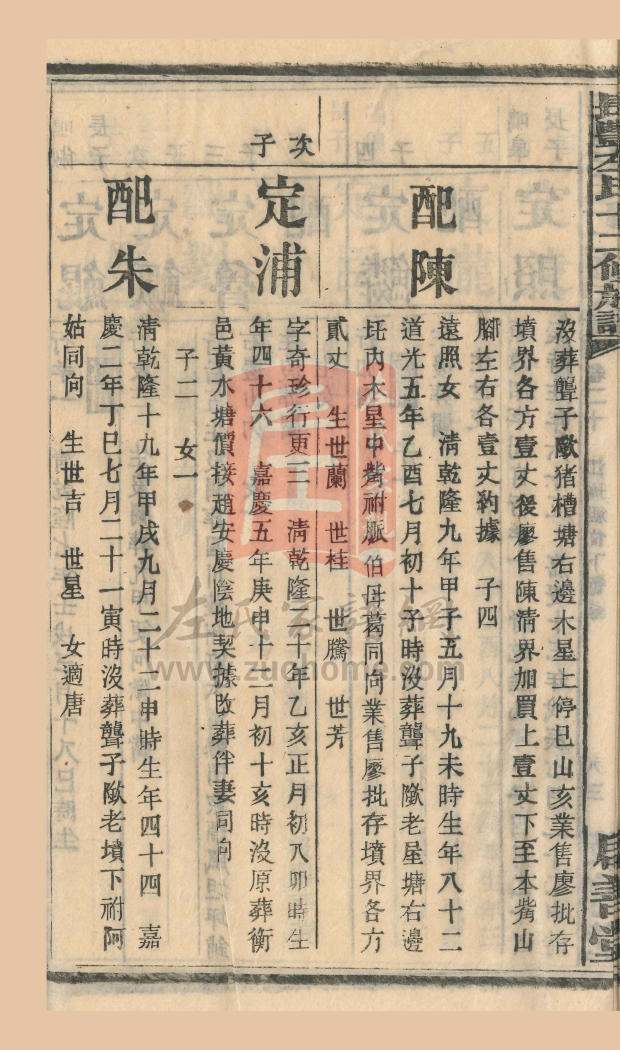 沒葬聾子歐猪槽塘右邊木星上停巳山亥業售廖批存
墳界各方壹丈後廖售陳清界加買上壹丈下至本嘴山
腳左右各壹丈約據　子四
配陳
遠照女　清乾隆九年甲子五月十九未時生年八十二
道光五年乙酉七月初十子時沒葬聾子歐老屋塘右邊
坃內木星中嘴祔脈伯母葛同向業售廖批存墳界各方
貳丈　生世蘭　世桂　世騰　世芳
次子
定浦
字奇珍行更三　清乾隆二十年乙亥正月初八卯時生
年四十六　嘉慶五年庚申十二月初十亥時沒原葬衡
邑黃水塘價接趙安慶陰地契據改葬伴妻同向
子二　女一
配朱
清乾隆十九年甲戌九月二十二申時生年四十四　嘉
慶二年丁巳七月二十一寅時沒葬聾子歐老墳下祔阿
姑同向　生世吉　世星　女適唐
左氏家譜網
www.zuohome.com